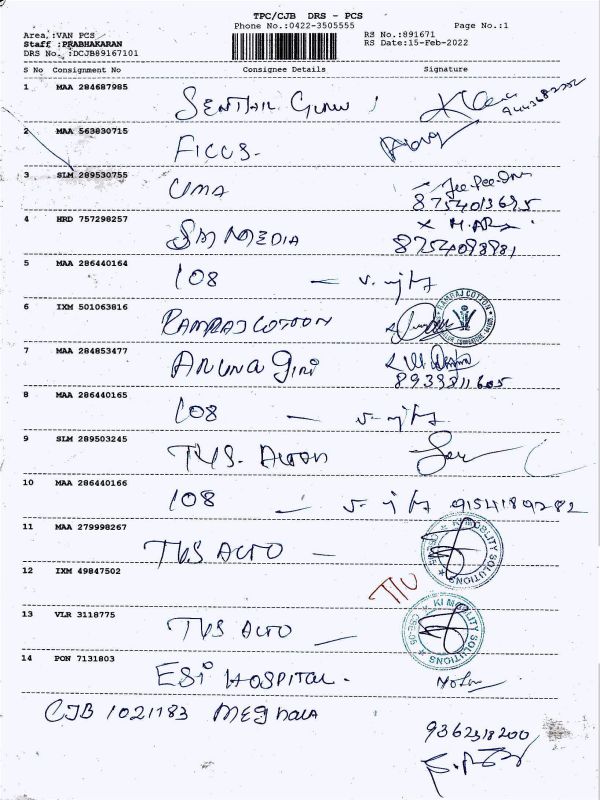 TPC/CJB DRS - PCS
Phone No.:0422-3505555
Page No.:1
Area :VAN PCS
RS No.:891671
Staff :PRABHAKARAN
RS Date:15-Feb-2022
DRS No. :DCJB89167101
S No Consignment No Consignee Details Signature
1 MAA 284687985
2 MAA 563830715 FICUS-
3 SLM 289530755 UMA
8754013695
4 HRD 757298257 SM MEDIA
8754098981
5 MAA 286440164 108 —
6 IXM 501063816 RAMRAJ COTTON RAMRAJ COTTON
7 MAA 284853477 Aruna giri
8939811605
8 MAA 286440165 108 —
9 SLM 289503245 TVS-
10 MAA 286440166 108 — 9154189282
11 MAA 279998267 TVS ALTO — KI MOBILITY SOLUTIONS
12 IXM 49847502
13 VLR 3118775 TVS ALTO — KI MOBILITY SOLUTIONS
14 PON 7131803 ESi HOSPITAL-
CJB 1021183
9362318200